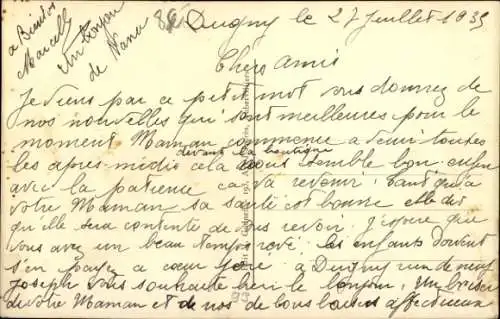 a Bientôt
Marcelle
Un bonjour
de Nana
86
Dugny le 27 Juillet 1935
Chers Amis
Je viens par ce petit mot vous donnez de
nos nouvelles qui sont meilleures pour le
moment Maman commence a venir toutes
devant la boutique
les apres-midis cela nous semble bon enfin
avec la patience ca va revenir. Tant qu'a
votre Maman sa santé est bonne elle dit
qu'elle sera contente de vous revoir J'espere que
vous avez un beau temps revé les enfants doivent
s'en payez a coeur joie a Dugny rien de neuf
Joseph vous souhaite bien le bonjour. Un baiser
de votre Maman et de nos de bons baisers affectueux